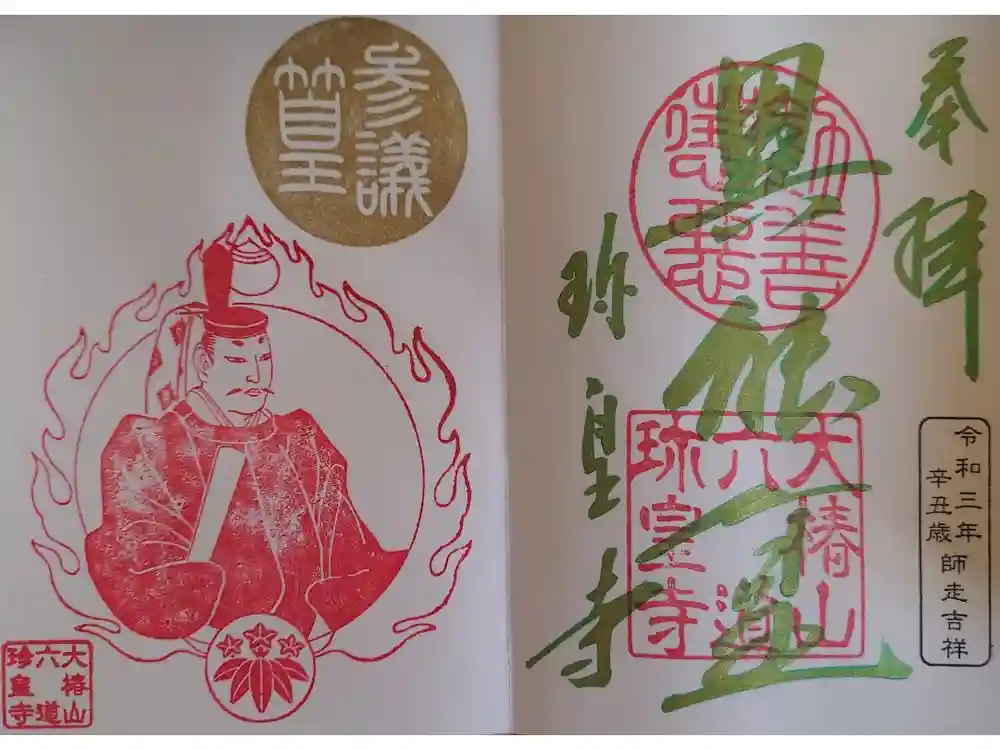 奉拝
勧善
懲悪
大椿山
六道
珎皇寺
珎皇寺
令和三年
辛丑歳
師走吉祥
參議
篁
大椿山
六道
珍皇寺